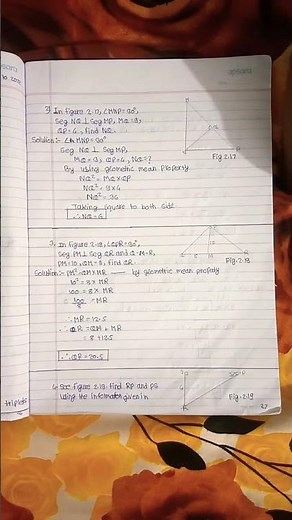 3) In figure 2.17, ∠MNP=90°,
seg NQ ⊥ seg MP, MQ=9,
QP=4, find NQ.
Solution:- ∠MNP=90°
Seg NQ ⊥ Seg MP,
MQ=9, QP=4, NQ=?
By using geometric mean property
NQ²= MQ×QP
NQ²= 9×4
NQ²= 36
Taking square to both side
∴ NQ=6
Fig 2.17
In figure 2.18, ∠QPR=90°,
seg PM⊥ seg QR and Q-M-R,
PM=10, QM=8, find QR.
Fig. 2.18
Solution:- PM²=QM×MR — by geometric mean property
10²=8×MR
100=8×MR
100/8=MR
∴ MR=12.5
∴ QR=QM+MR
= 8+12.5
∴ QR=20.5
See figure 2.19. Find RP and PS
using the information given in
Fig. 2.19